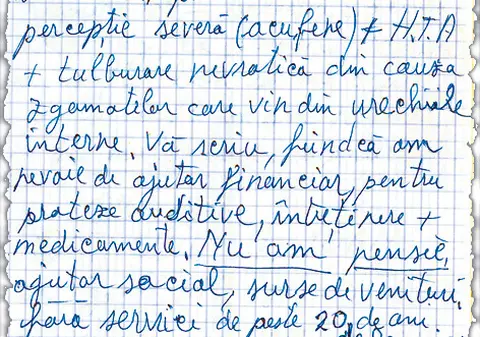 percepție severă (acufene) + H.T.A
+ tulburare nevratică din cauza
zgomatelor care vin din urechiale
interne. Vă scriu, fiindcă am
nevoie de ajutor financiar, pentru
prateze auditive, întreținere +
medicamente. Nu am pensie,
ajutor social, surse de venituri,
fără servici de peste 20 de ani.